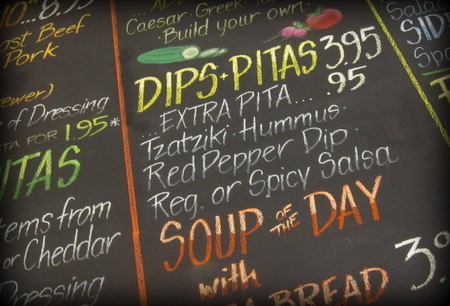 10... 8
ast Beef
Pork
ewer)
of Dressing
TA FOR 1.95*
ITAS
tems from
or Cheddar
Dressing
Caesar. Greek.
Build your own:
DIPS+PITAS 3.95
...EXTRA PITA.... .95
Tzatziki. Hummus.
Red Pepper Dip.
Reg. or Spicy Salsa
SOUP OF THE DAY
with
BREAD 3.
Salad
SID
Spa